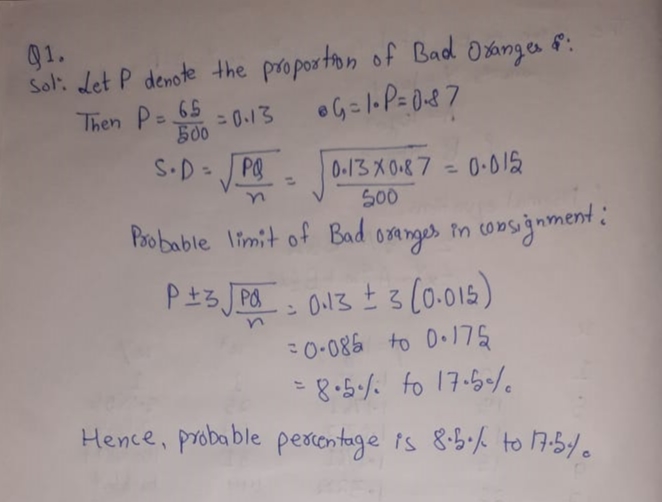 Q1.
Sol: Let P denote the proportion of Bad Oranges &:
Then P = 65/500 = 0.13 Q = 1-P = 0.87
S.D = √(PQ/n) = √(0.13 X 0.87/500) = 0.015
Probable limit of Bad oranges in consignment:
P ± 3√(PQ/n) = 0.13 ± 3(0.015)
= 0.085 to 0.175
= 8.5% to 17.5%
Hence, probable percentage is 8.5% to 17.5%.